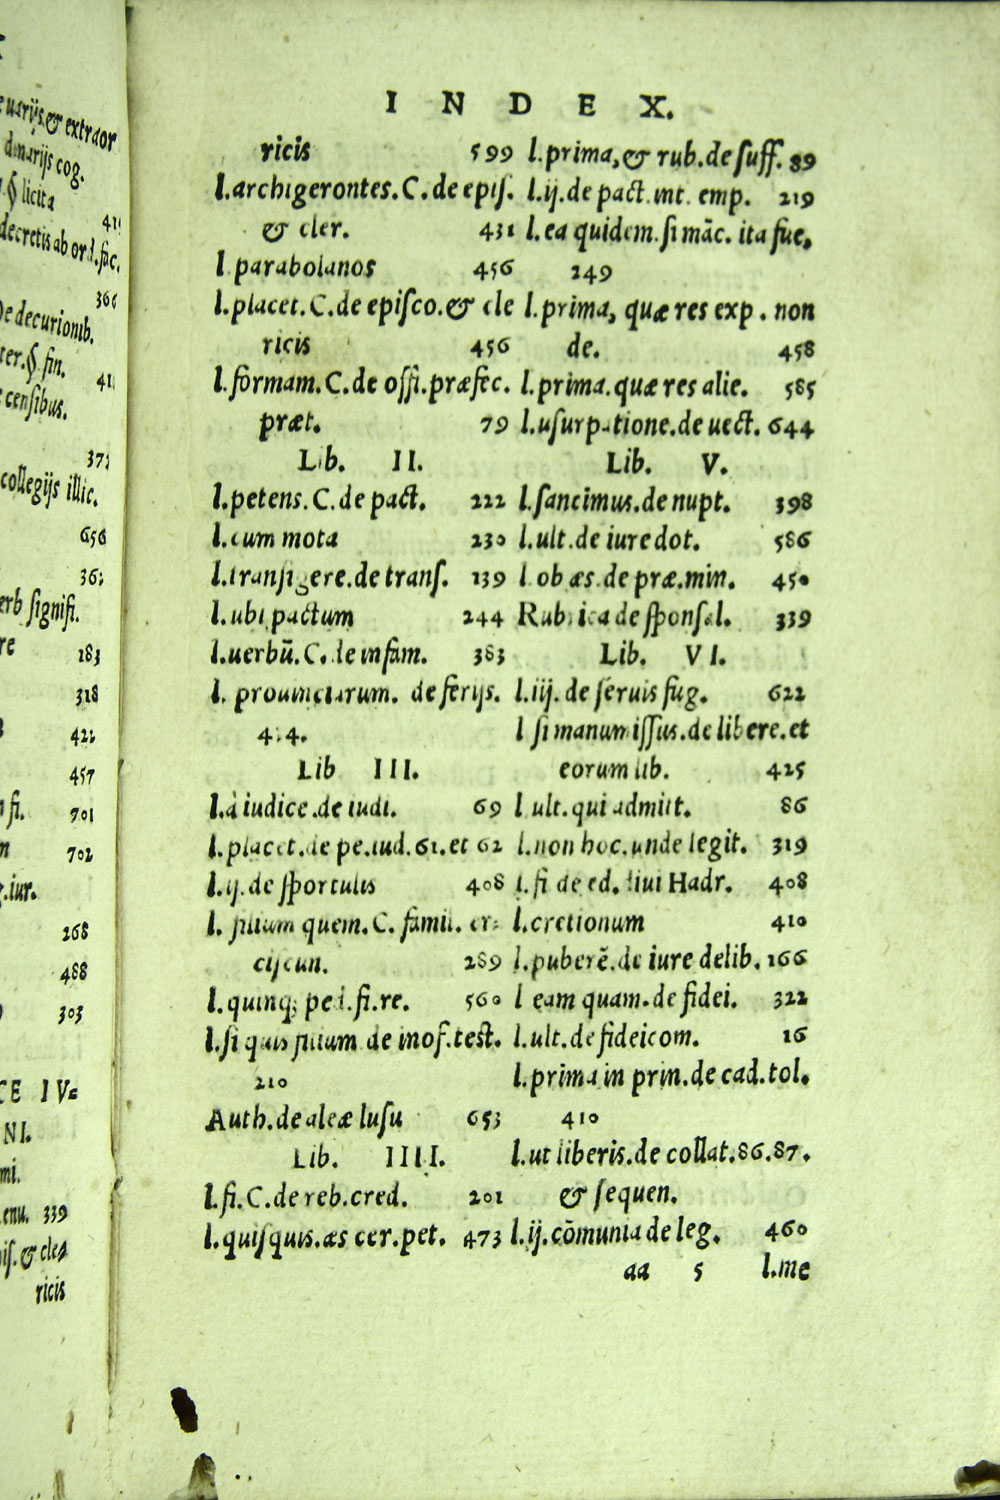 uarijs.& extraor
dinarijs cog.
§ licita
41
decretis ab ord. fac.
366
De decurionib.
ter. § fin.
41
censibus.
373
collegijs illic.
656
361
erb signifi.
re
183
318
422
457
fi.
701
702
g.iur.
268
488
303
CE IV=
NI.
mi.
enu. 339
pis. & cle
ricis
I N D E X.
ricis 599
l.archigerontes. C. de epis.
& cler. 431
l parabolanos 456
l.placet. C. de episco. & cle
ricis 456
l.formam. C. de offi. præfec.
præt. 79
Lib. II.
l.petens. C. de pact. 222
l.cum mota 230
l.transigere. de trans. 139
l.ubi pactum 244
l.uerbū. C. de infam. 383
l. prouinciarum. de ferijs.
4.4.
Lib III.
l.à iudice .de iudi. 69
l.placet. de pe. iud. 61. et 62
l.ij. de sportulis 408
l. filium quem. C. famil. er=
ciscun. 289
l.quinq; pedi. fi. re. 560
l.si quis filium de inof. test.
210
Auth. de aleæ lusu 653
Lib. IIII.
l.fi. C. de reb. cred. 201
l.quisquis. æs cer. pet. 473
l.prima, & rub. de suff. 89
l.ij. de pact. int. emp. 219
l.ea quidem. si māc. ita fue.
249
l.prima, quæ res exp. non
de. 458
l.prima. quæ res alie. 585
l.usurpatione. de uect. 644
Lib. V.
l.sancimus. de nupt. 398
l.ult. de iure dot. 586
l ob æs. de præ. min. 450
Rubrica de sponsal. 339
Lib. VI.
l.iij. de seruis fug. 622
l si manumissus. de libere. et
eorum lib. 425
l ult. qui admitt. 86
l.non hoc. unde legit. 319
l.fi de ed. diui Hadr. 408
l.cretionum 410
l.puberē. de iure delib. 166
l eam quam. de fidei. 322
l.ult. de fideicom. 16
l.prima in prin. de cad. tol.
410
l.ut liberis. de collat. 86. 87.
& sequen.
l.ij. cōmunia de leg. 460
aa 5 l.me